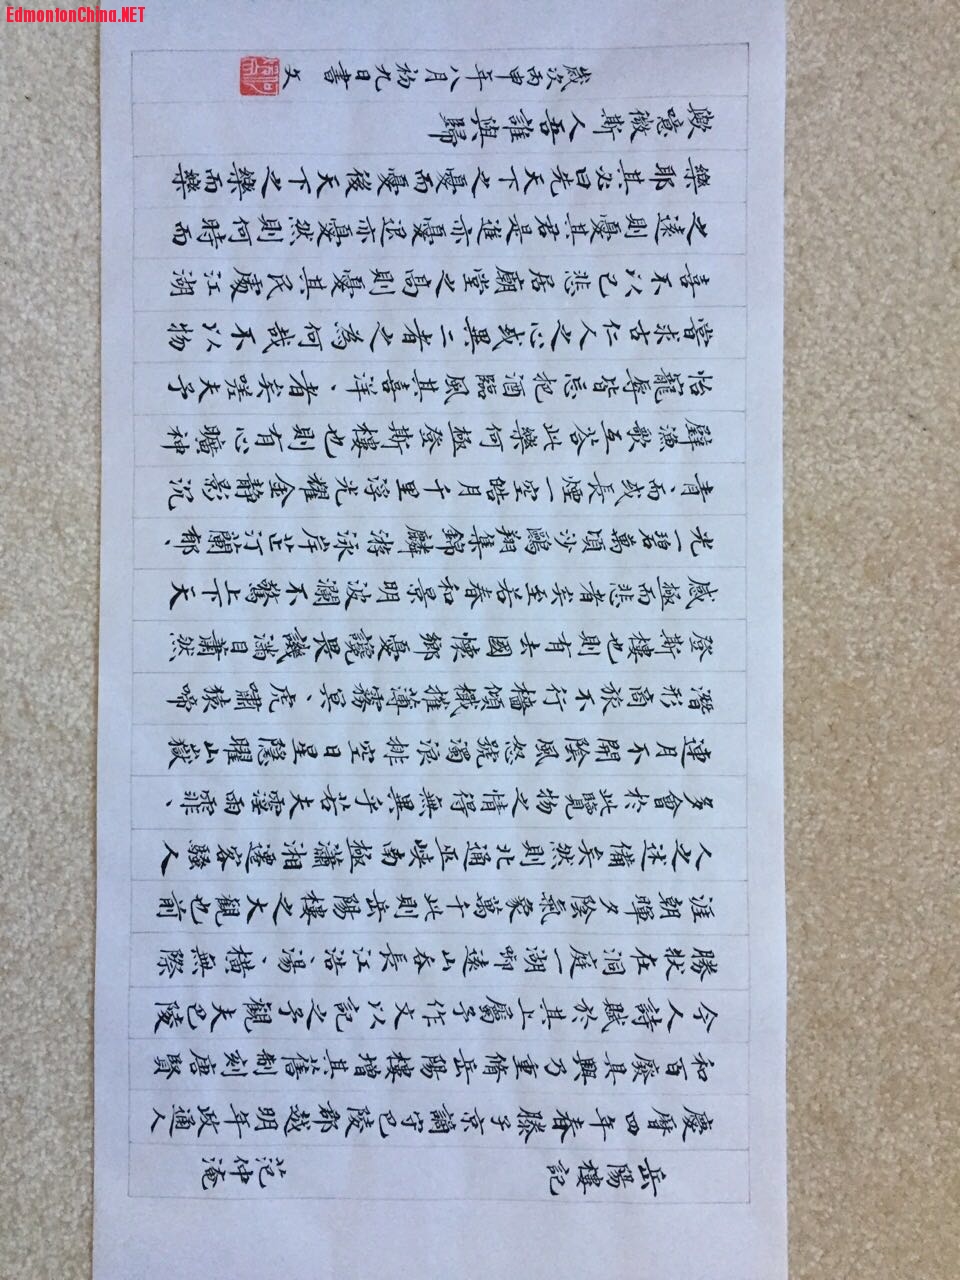 EdmontonChina.NET
岳陽樓記 范仲淹
慶曆四年春滕子京謫守巴陵郡越明年政通人
和百廢具興乃重脩岳陽樓增其舊制刻唐賢
今人詩賦於其上屬予作文以記之予觀夫巴陵
勝狀在洞庭一湖啣遠山吞長江浩、湯、橫無際
涯朝暉夕陰氣象萬千此則岳陽樓之大觀也前
人之述備矣然則北通巫峽南極瀟湘遷客騷人
多會於此覽物之情得無異乎若夫霪雨霏、
連月不開陰風怒號濁浪排空日星隱曜山嶽
潛形商旅不行檣傾檝摧薄霧冥、虎嘯猿啼
登斯樓也則有去國懷鄉憂讒畏譏滿目蕭然
感極而悲者矣至若春和景明波瀾不驚上下天
光一碧萬頃沙鷗翔集錦麟游泳岸芷汀蘭郁、
青、而或長煙一空皓月千里浮光耀金静影沉
璧漁歌互荅此樂何極登斯樓也則有心曠神
怡寵辱皆忘把酒臨風其喜洋、者矣嗟夫予
嘗求古仁人之心或異二者之為何哉不以物
喜不以己悲居廟堂之高則憂其民處江湖
之遠則憂其君是進亦憂退亦憂然則何時而
樂耶其必曰先天下之憂而憂後天下之樂而樂
歟噫微斯人吾誰與歸
歲次丙申年八月初九日書 文